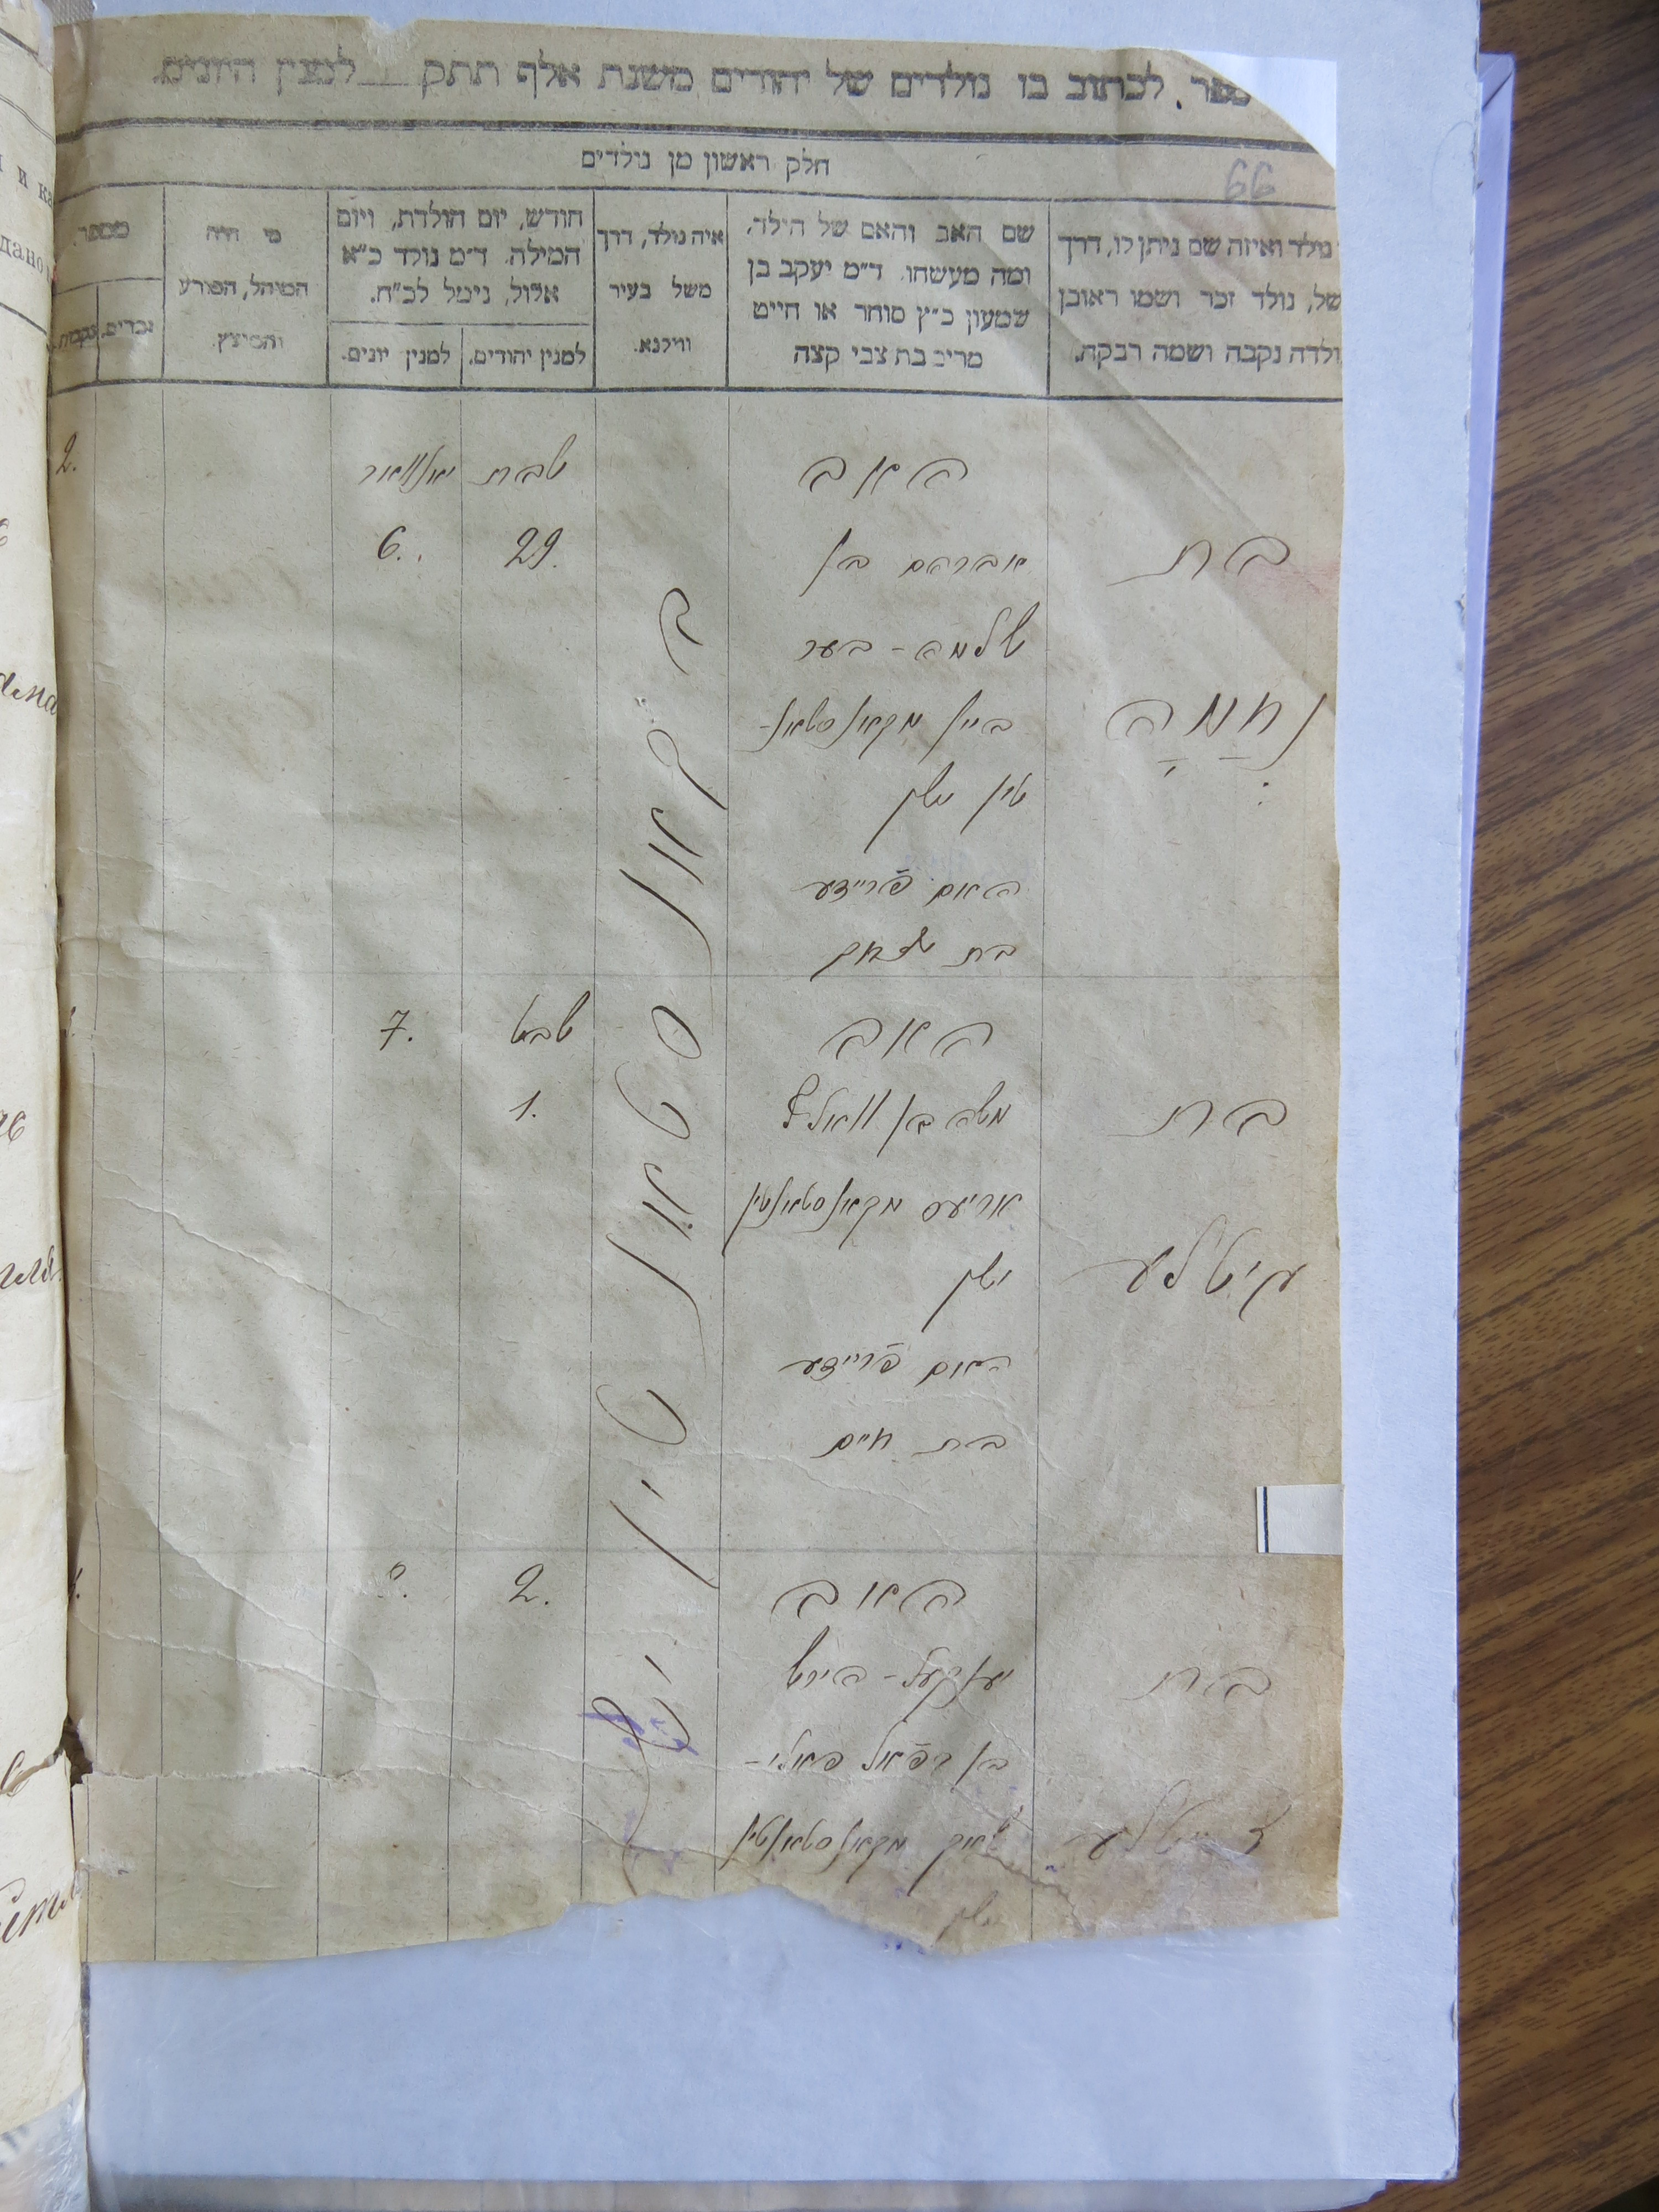 ספר לכתוב בו נולדים של יהודים משנת אלף תתק למנין היונים
חלק ראשון מן נולדים
66
נולד ואיזה שם ניתן לו, דרך
משל, נולד זכר ושמו ראובן
נולדה נקבה ושמה רבקה.
שם האב והאם של הילד,
ומה מעשהו. ד״מ יעקב בן
שמעון כ״ץ סוחר או חייט
מרים בת צבי קצב
איה נולד, דרך
משל בעיר
ווילנא.
חודש, יום הולדת, ויום
המילה. ד״מ נולד כ״א
אלול, נימל לכ״ח.
למנין יהודים.
למנין יונים.
מי היה
המוהל, הפורע
והמוצץ
מספר.
זכרים.
נקבות.
בת
נחמה
האב
אברהם בן
שלמה - בער
מקאנסטאנ-
טין ישן
האם פריידע
בת יצחק
טבת
29.
יאנואר
6.
2.
בקאנסטאנטין ישן
בת
קיטלע
האב
משה בן וואלף
מקאנסטאנטין
ישן
האם פריידע
בת חיים
שבט
1.
7.
בת
האב
יאנקעל - הירש
בן רפאל
מקאנסטאנטין
ישן
2.